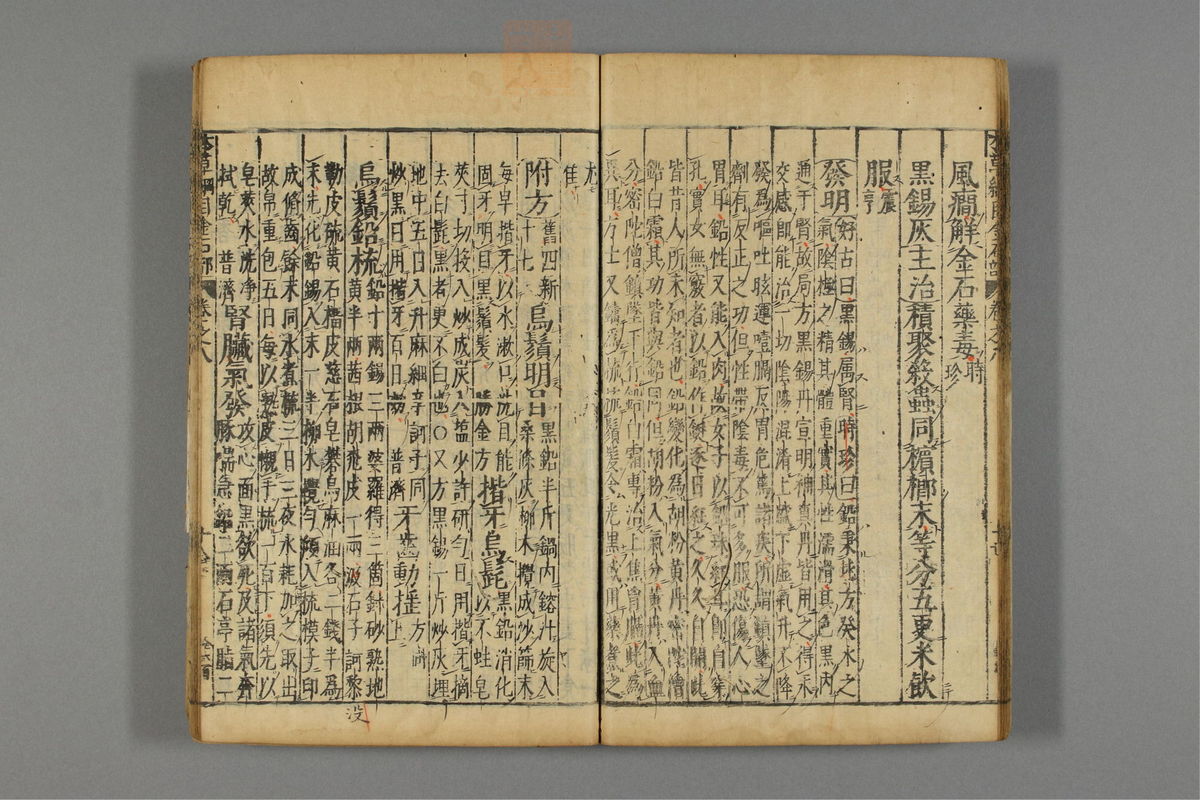 風癇解金石藥毒時珍
黑錫灰主治積聚殺蟲同檳榔末等分五更米飲
服震亨
發明好古曰黑錫属腎時珍曰鉛秉北方癸水之
氣陰極之精其體重實其性濡滑其色黑内
通于腎故局方黑錫丹宣明神真丹皆用之得汞
交感即能治一切陰陽混淆上盛下虛氣升不降
發爲嘔吐眩運噎膈反胃危篤諸疾所謂鎮墜之
劑有反正之功但性帶陰毒不可多服恐傷人心
胃耳鉛性又能入肉故女子以鉛珠紝耳即自穿
孔實女無竅者以鉛作鋌逐日紝之久久自開此
皆昔人所未知者也鉛變化爲胡粉黄丹密陀僧
鉛白霜其功皆與鉛同但胡粉入氣分黄丹入血
分密陀僧鎮墜下行鉛白霜專治上焦胸膈此爲
異耳方士又鑄爲梳梳鬚髮令光黑或用藥煮之
尤
佳
附方舊四新十七烏鬚明目黑鉛半斤鍋内鎔汁旋入
桑條灰柳木攪成沙篩末
每早揩牙以水漱口洗目能
固牙明目黑鬚髮勝金方揩牙烏髭黑鉛消化
以不蛀皂
莢寸切投入炒成炭入塩少許研匀日用揩牙摘
去白髭黑者更不白也○又方黑錫一斤炒灰埋
地中五日入升麻細辛訶子同
炒黑日用揩牙百日效普濟牙齒動揺方同上
烏鬚鉛梳鉛十兩錫三兩婆羅得三箇針砂熟地
黄半兩茜根胡桃皮一兩没石子訶黎
勒皮硫黄石榴皮慈石皂礬烏麻油各二錢半爲
末先化鉛錫入末一半柳木攪匀傾入梳模子印
成修齒餘末同水煮梳三日三夜水耗加之取出
故帛重包五日每以熟皮襯手梳一百下須先以
皂莢水洗净
拭乾普濟腎臟氣發攻心面黑欲死及諸氣奔
豚喘急鉛二兩石亭脂二
没